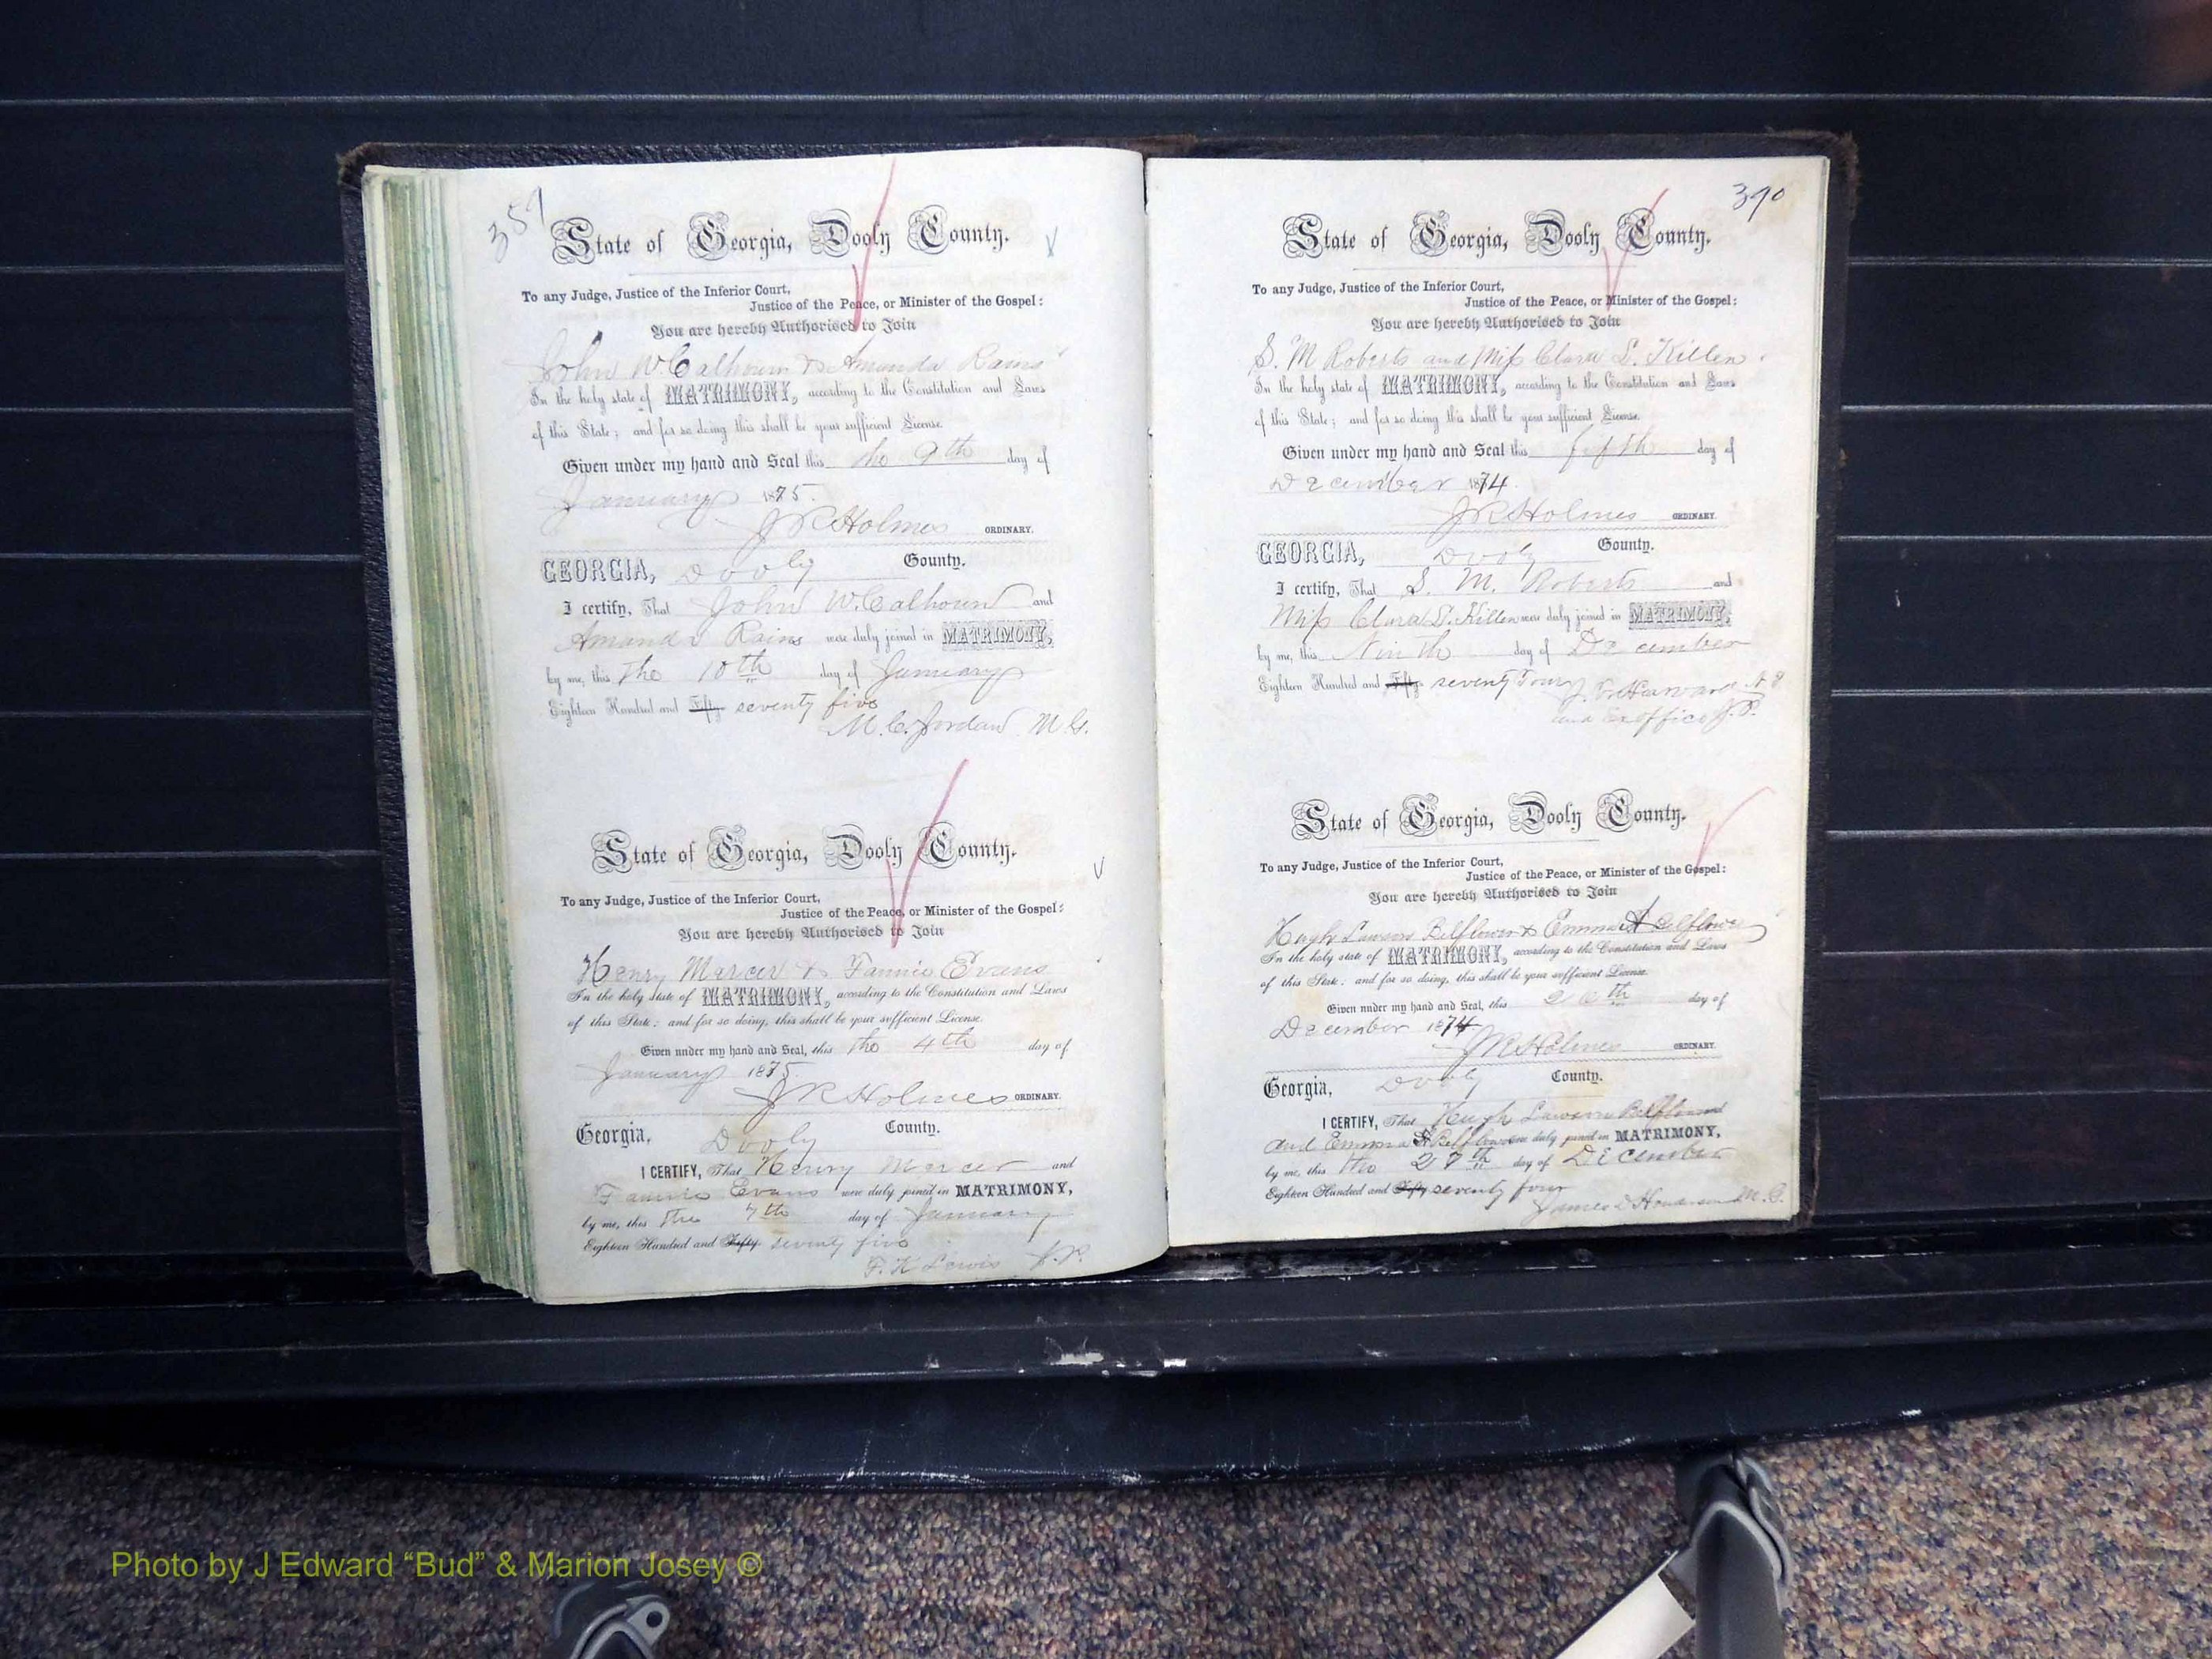 State of Georgia, Dooly County.
To any Judge, Justice of the Inferior Court,
Justice of the Peace, or Minister of the Gospel:
You are hereby Authorised to Join
John W. Calhoun & Amanda Rains
In the holy state of MATRIMONY, according to the Constitution and Laws
of this State; and for so doing this shall be your sufficient License.
Given under my hand and Seal this the 9th day of
January 1875.
J R Holmes ORDINARY.
GEORGIA, Dooly County.
I certify, That John W. Calhoun and
Amanda Rains were duly joined in MATRIMONY,
by me, this the 10th day of January
Eighteen Hundred and Fifty seventy five
M. C. Jordan M. G.
State of Georgia, Dooly County.
To any Judge, Justice of the Inferior Court,
Justice of the Peace, or Minister of the Gospel:
You are hereby Authorised to Join
Henry Mercer & Fannie Evans
In the holy state of MATRIMONY, according to the Constitution and Laws
of this State: and for so doing, this shall be your sufficient License.
Given under my hand and Seal, this the 4th day of
January 1875
J R Holmes ORDINARY.
Georgia, Dooly County.
I CERTIFY, That Henry Mercer and
Fannie Evans were duly joined in MATRIMONY,
by me, this the 7th day of January
Eighteen Hundred and Fifty seventy five
Lewis J. P.
390
State of Georgia, Dooly County.
To any Judge, Justice of the Inferior Court,
Justice of the Peace, or Minister of the Gospel:
You are hereby Authorised to Join
S. M Roberts and Miss Clara L. Killen
In the holy state of MATRIMONY, according to the Constitution and Laws
of this State; and for so doing this shall be your sufficient License.
Given under my hand and Seal this fifth day of
December 1874.
J R Holmes ORDINARY.
GEORGIA, Dooly County.
I certify, That S. M. Roberts and
Miss Clara L. Killen were duly joined in MATRIMONY,
by me, this Ninth day of December
Eighteen Hundred and Fifty seventy Four Harvard N P
and Ex officio J. P.
State of Georgia, Dooly County.
To any Judge, Justice of the Inferior Court,
Justice of the Peace, or Minister of the Gospel:
You are hereby Authorised to Join
Hugh Lawson Belflower & Emma A Belflower
In the holy state of MATRIMONY, according to the Constitution and Laws
of this State: and for so doing, this shall be your sufficient License.
Given under my hand and Seal, this 26th day of
December 1874
J R Holmes ORDINARY.
Georgia, Dooly County.
I CERTIFY, That Hugh Lawson Belflower and
and Emma A Belflower were duly joined in MATRIMONY,
by me, this the 27th day of December
Eighteen Hundred and Fifty seventy four
James M. G.
Photo by J Edward “Bud” & Marion Josey ©